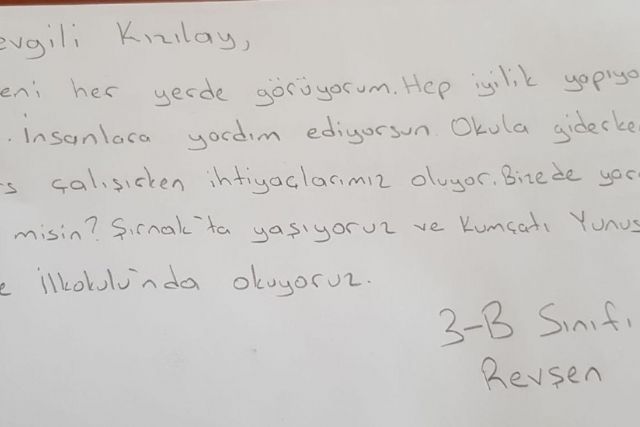 evgili Kızılay,
eni her yerde görüyorum. Hep iyilik yapıyo
. İnsanlara yardım ediyorsun. Okula giderke
s çalışırken ihtiyaçlarımız oluyor. Bizede yar
misin? Şırnak'ta yaşıyoruz ve Kumçatı Yunus
e İlkokulu'nda okuyoruz.
3-B Sınıfı
Revşen